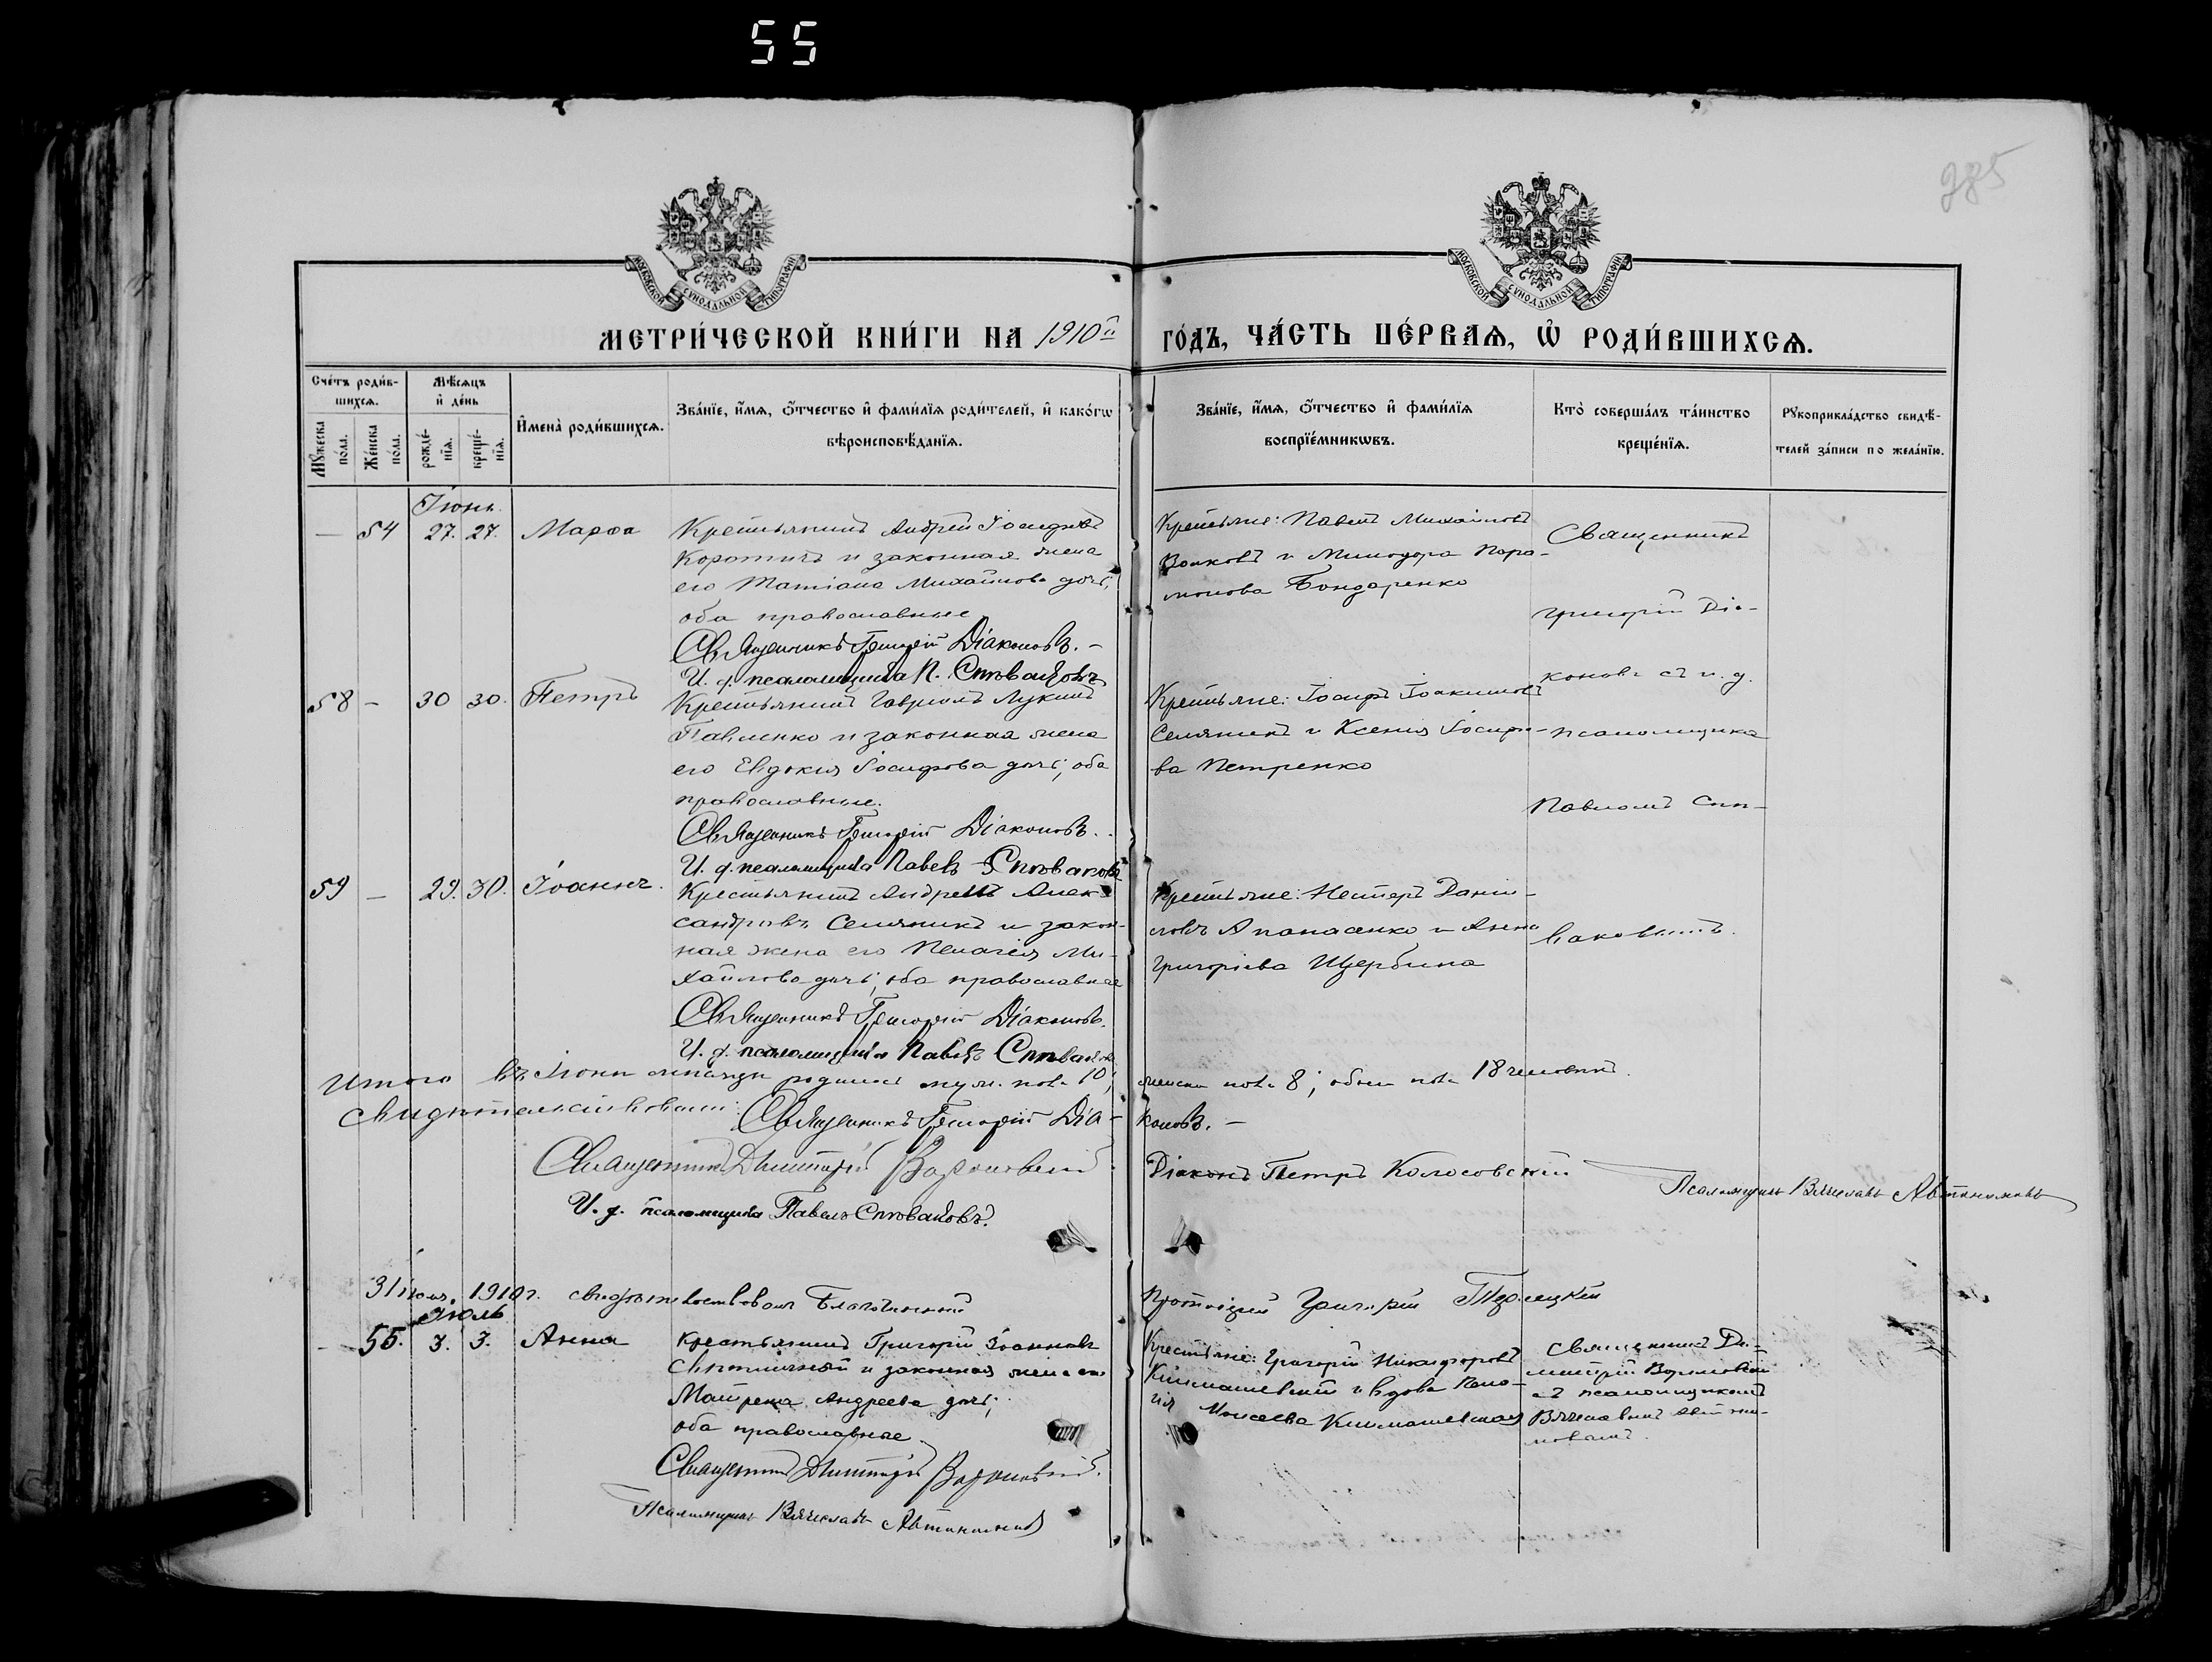 55
285
МОСКОВСКОЙ СѴНОДАЛЬНОЙ ТИПОГРАФІИ
МОСКОВСКОЙ СѴНОДАЛЬНОЙ ТИПОГРАФІИ
МЕТРИ́ЧЕСКОЙ КНИ́ГИ НА 1910й ГО́ДЪ, ЧА́СТЬ ПЕ́РВАѦ, Ѿ РОДИ́ВШИХСѦ.
Сче́тъ роди́в-
шихсѧ.
Мꙋжеска
по́ла.
Же́нска
по́ла.
Мѣ́сѧцъ
и де́нь
рожде́-
нїѧ.
креще́-
нїѧ.
Имена̀ роди́вшихсѧ.
Зва́нїе, и́мѧ, о́тчество и фами́лїѧ роди́телей, и како́гѡ
вѣроисповѣ́данїѧ.
Зва́нїе, и́мѧ, о́тчество и фами́лїѧ
воспрїе́мникѡвъ.
Кто̀ соверша́лъ та́инство
креще́нїѧ.
Рꙋкоприкла́дство свидѣ́-
телей за́писи по жела́нїю.
Іюнь
— 54 27. 27. Марѳа
Крестьянинъ Андрей Іосифовъ
Коротичъ и законная жена
его Татіана Михайлова дочь,
оба православные
Священникъ Григорій Діаконовъ. —
И. д. псаломщика П. Спѣваковъ
Крестьяне: Павелъ Михайловъ
Волковъ и Минодора Пара-
монова Бондаренко
Священникъ
Григорій Діа-
коновъ съ и. д.
псаломщика
Павломъ Спѣ-
ваковымъ.
58 — 30 30. Петръ
Крестьянинъ Гавріилъ Лукинъ
Павленко и законная жена
его Евдокія Іосифова дочь, оба
православные.
Священникъ Григорій Діаконовъ.
И. д. псаломщика Павелъ Спѣваковъ
Крестьяне: Іосифъ Іоакимовъ
Селяникъ и Ксенія Іосифо-
ва Петренко
59 — 29. 30. Іоаннъ.
Крестьянинъ Андрей Алек-
сандровъ Селяникъ и закон-
ная жена его Пелагія Ми-
хайлова дочь, оба православные
Священникъ Григорій Діаконовъ.
И. д. псаломщика Павелъ Спѣваковъ
Крестьяне: Несторъ Дані-
ловъ Апанасенко и Анна
Григоріева Щербина
Итого въ Іюнѣ мѣсяцѣ родилось муж. пола 10; женска пола 8; обоего пола 18 человѣкъ.
Свидѣтельствовали: Священникъ Григорій Діа-
коновъ. —
Священникъ Димитрій
Діаконъ Петръ Колосовскій
Псаломщикъ Вячеславъ Автономовъ
И. д. псаломщика Павелъ Спѣваковъ.
31 іюля 1910 г. свидѣтельствовалъ Благочинный Протоіерей Григорій
Іюль
— 55. 3. 3. Анна
Крестьянинъ Григорій Іоанновъ
и законная жена его
Матрена Андреева дочь,
оба православные
Священникъ Димитрій
Псаломщикъ Вячеславъ Автономовъ
Крестьяне: Григорій Никифоровъ
и вдова Пела-
гія Моисеева
Священникъ Ди-
митрій
съ псаломщикомъ
Вячеславомъ Автоно-
мовымъ.